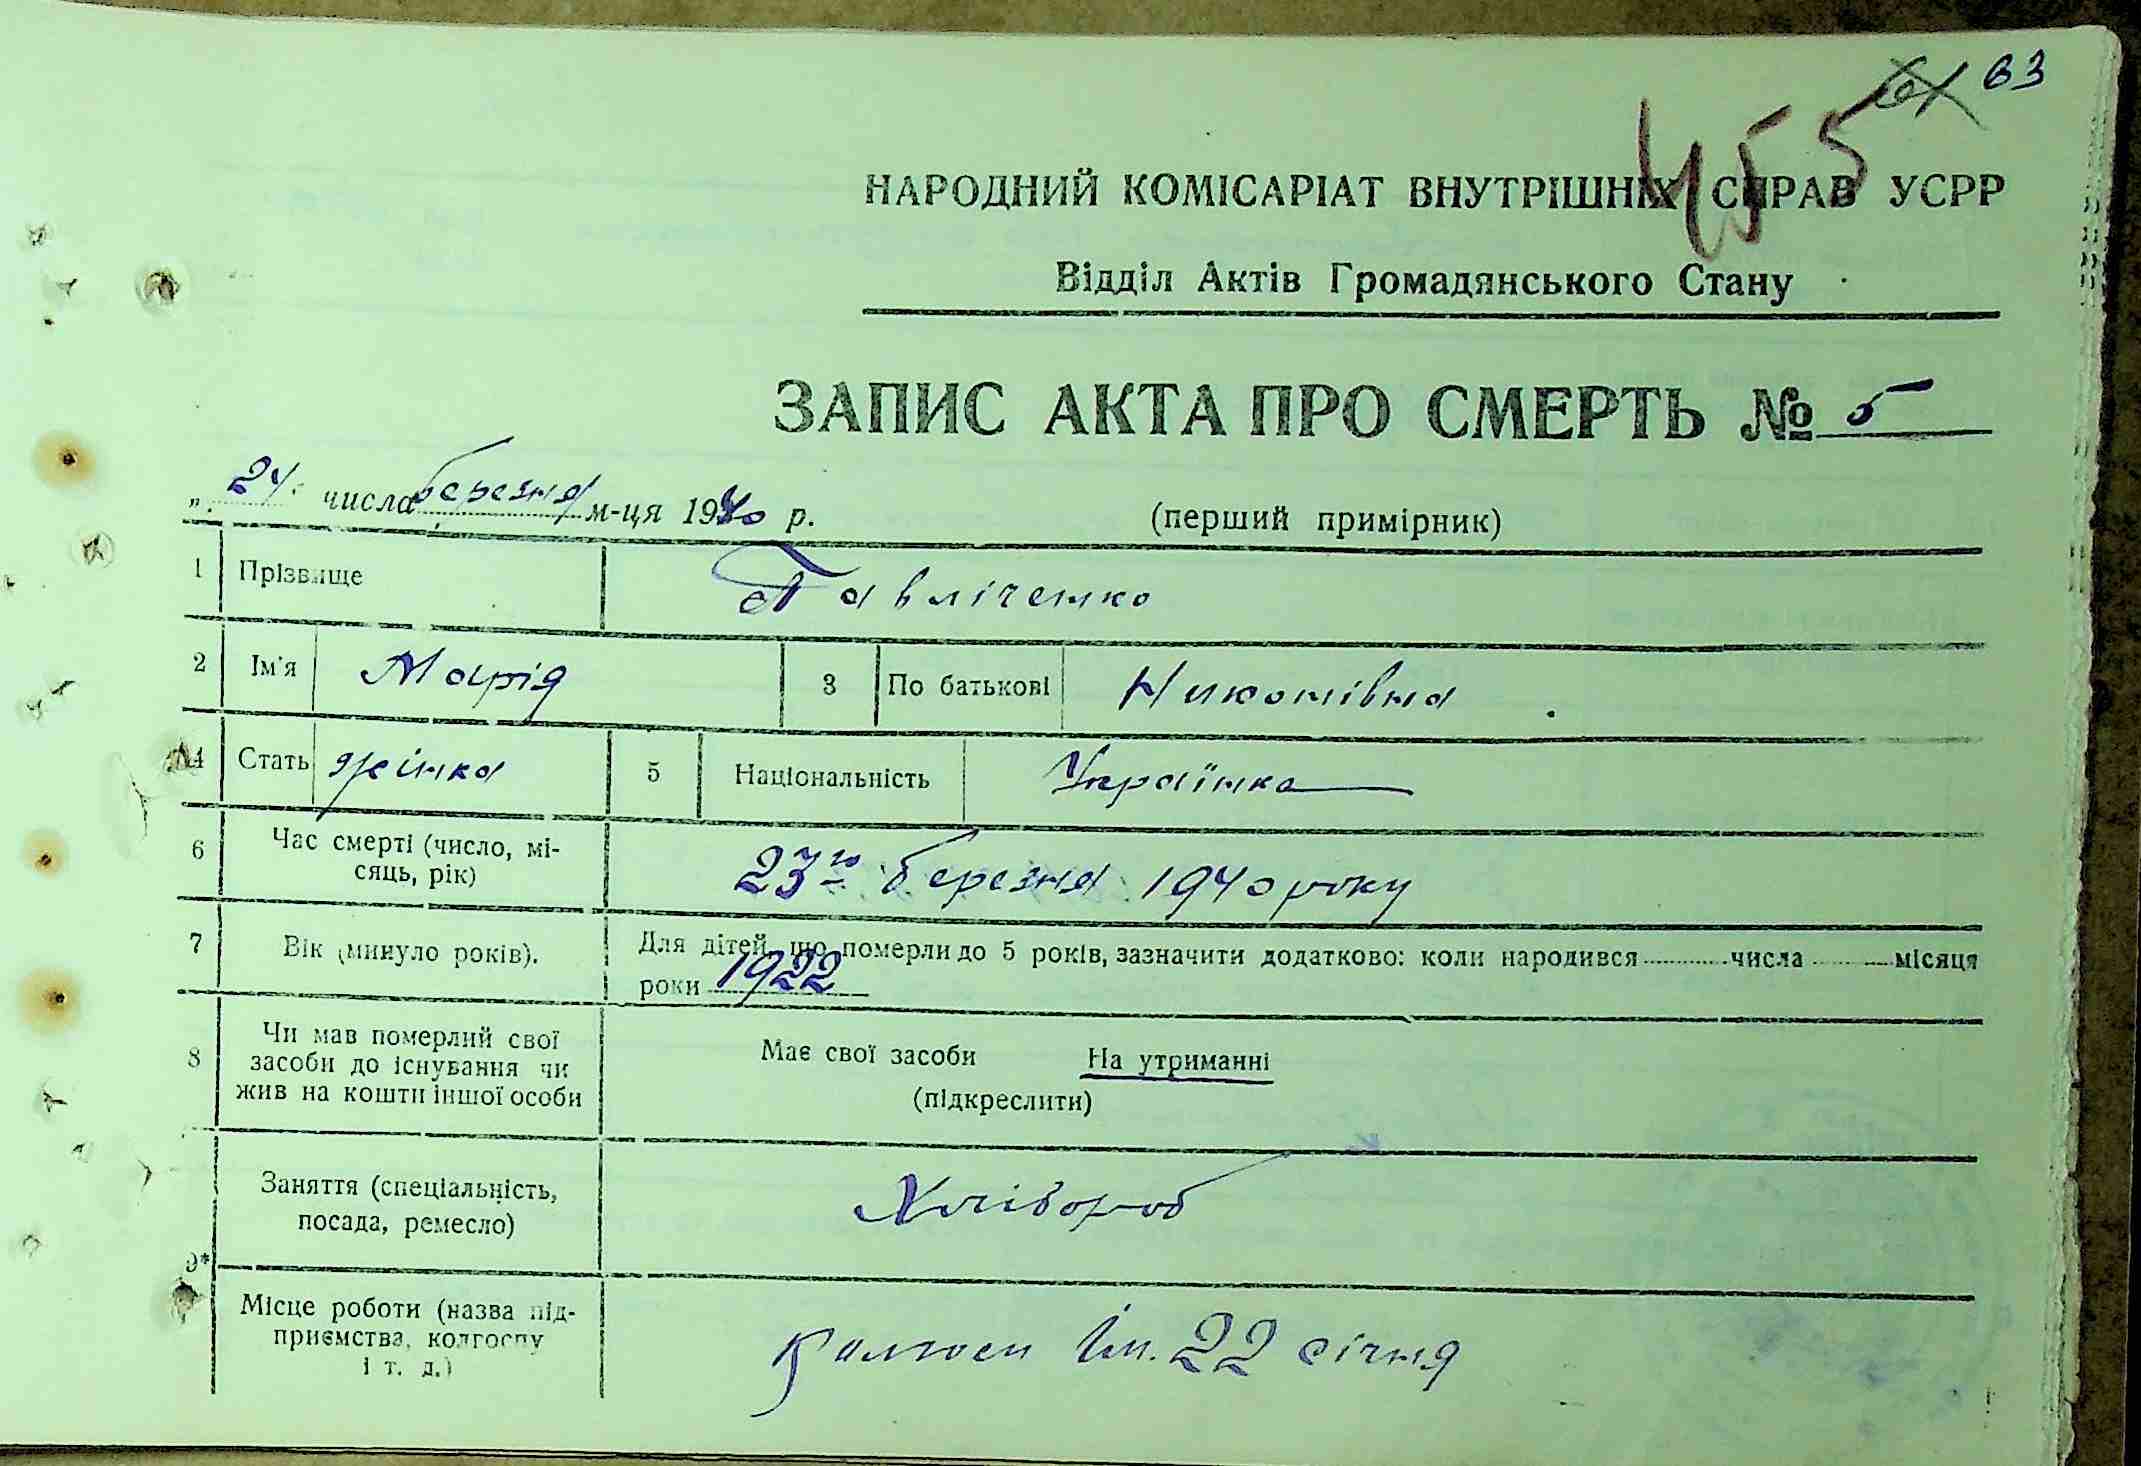 63
455
НАРОДНИЙ КОМІСАРІАТ ВНУТРІШНІХ СПРАВ УСРР
Відділ Актів Громадянського Стану
ЗАПИС АКТА ПРО СМЕРТЬ № 5
„ 24 числа березня м-ця 1940 р. (перший примірник)
1 Прізвище Павліченко
2 Ім'я Марія 3 По батькові Никонівна
4 Стать жінка 5 Національність Українка
6 Час смерті (число, мі-
сяць, рік) 23го березня 1940 року
7 Вік (минуло років). Для дітей, що померли до 5 років, зазначити додатково: коли народився числа місяця
роки 1922
8 Чи мав померлий свої
засоби до існування чи
жив на кошти іншої особи
Має свої засоби На утриманні
(підкреслити)
Заняття (спеціальність,
посада, ремесло) Хлібороб
9*
Місце роботи (назва під-
приємства, колгоспу
і т. д.) Колгосп ім. 22 січня